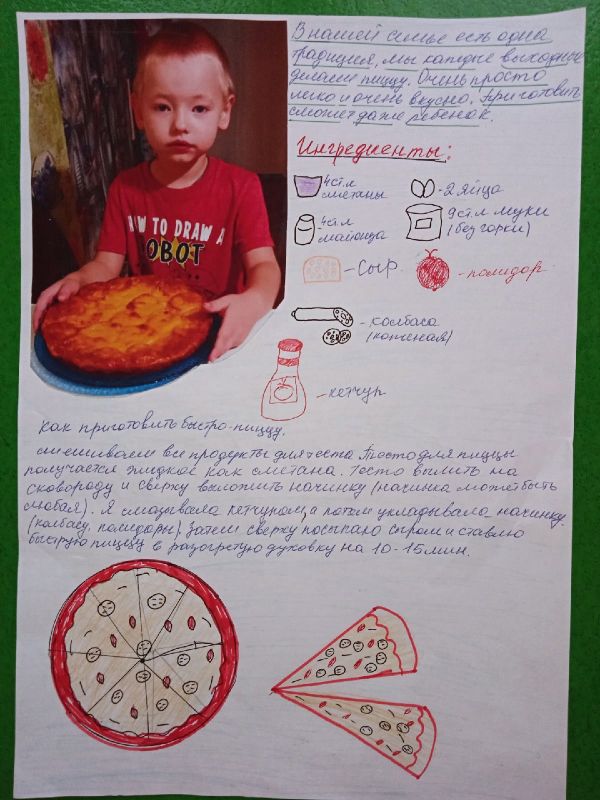 В нашей семье есть одна
традиция, мы каждые выходные
делаем пиццу. Очень просто
легко и очень вкусно. Приготовить
сможет даже ребёнок.
Ингредиенты:
4 ст.л сметаны
- 2 яйца
4 ст.л майонеза
9 ст.л муки (без горки)
- Сыр
- помидор
- колбаса (копченая)
- кетчуп
HOW TO DRAW A
ROBOT
Как приготовить быстро-пиццу.
смешиваем все продукты для теста. Тесто для пиццы
получается жидкое как сметана. Тесто вылить на
сковороду и сверху выложить начинку (начинка может быть
любая). Я смазывала кетчупом, а потом укладывала начинку.
(колбасу, помидоры). Затем сверху посыпаю сыром и ставлю
быструю пиццу в разогретую духовку на 10-15 мин.